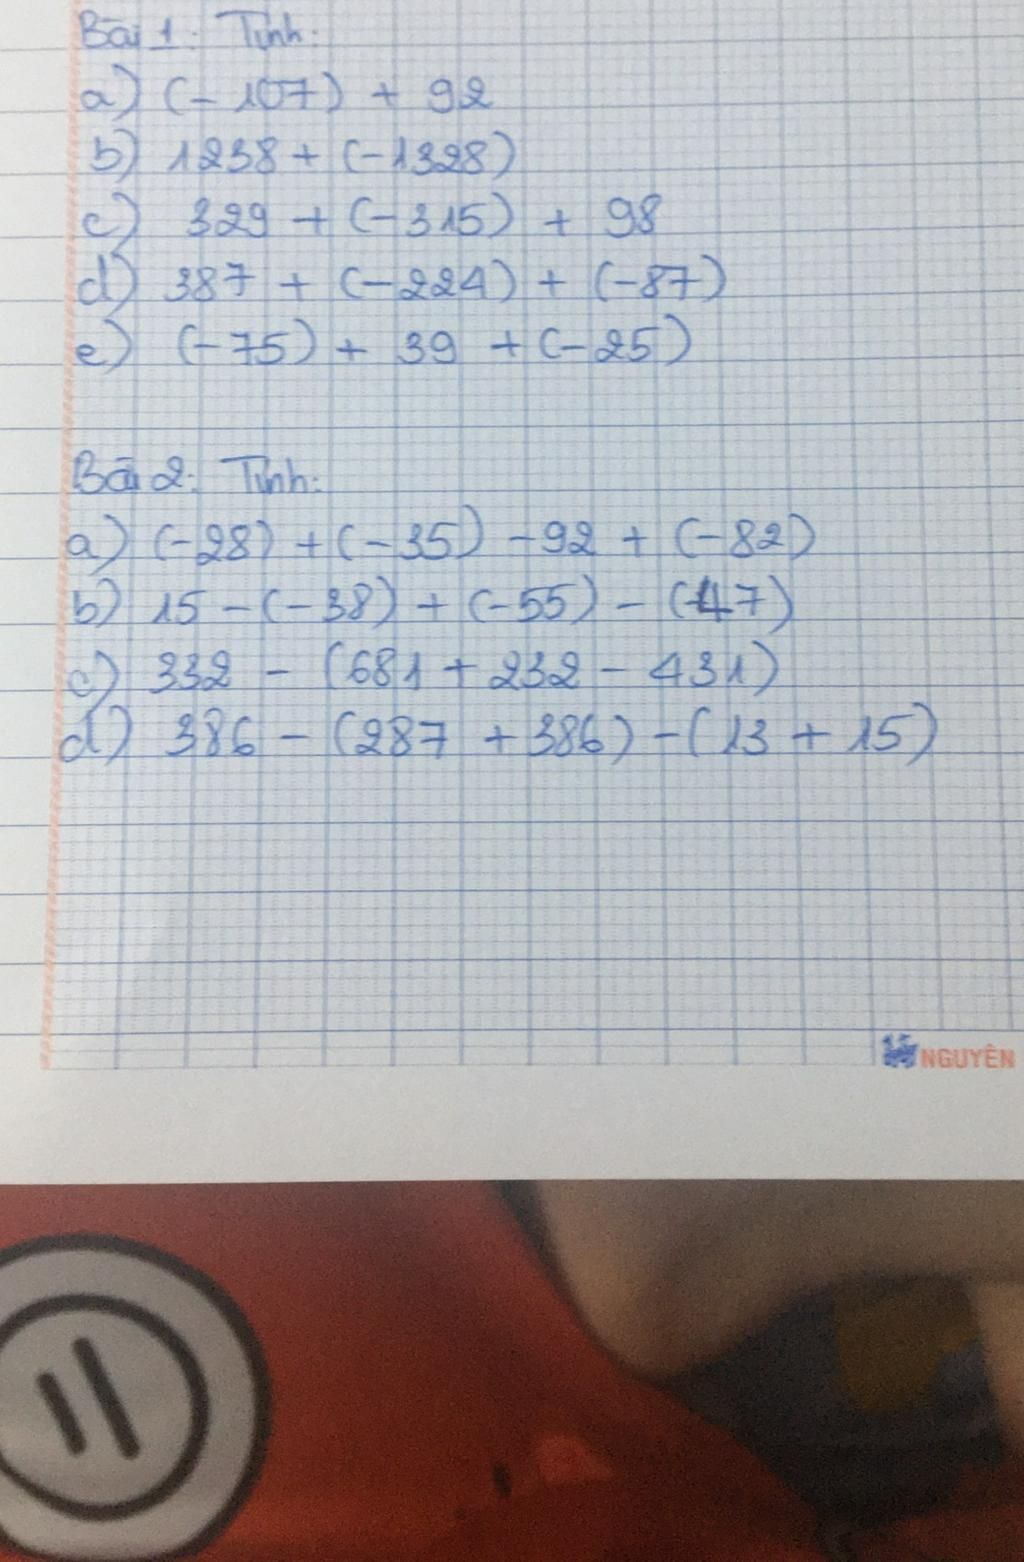 Bài 1: Tính:
a) (-107) + 92
b) 1238 + (-1328)
c) 329 + (-315) + 98
d) 387 + (-224) + (-87)
e) (-75) + 39 + (-25)
Bài 2: Tính:
a) (-28) + (-35) - 92 + (-82)
b) 15 - (-38) + (-55) - (-47)
c) 332 - (681 + 232 - 431)
d) 386 - (287 + 386) - (13 + 15)
NGUYÊN